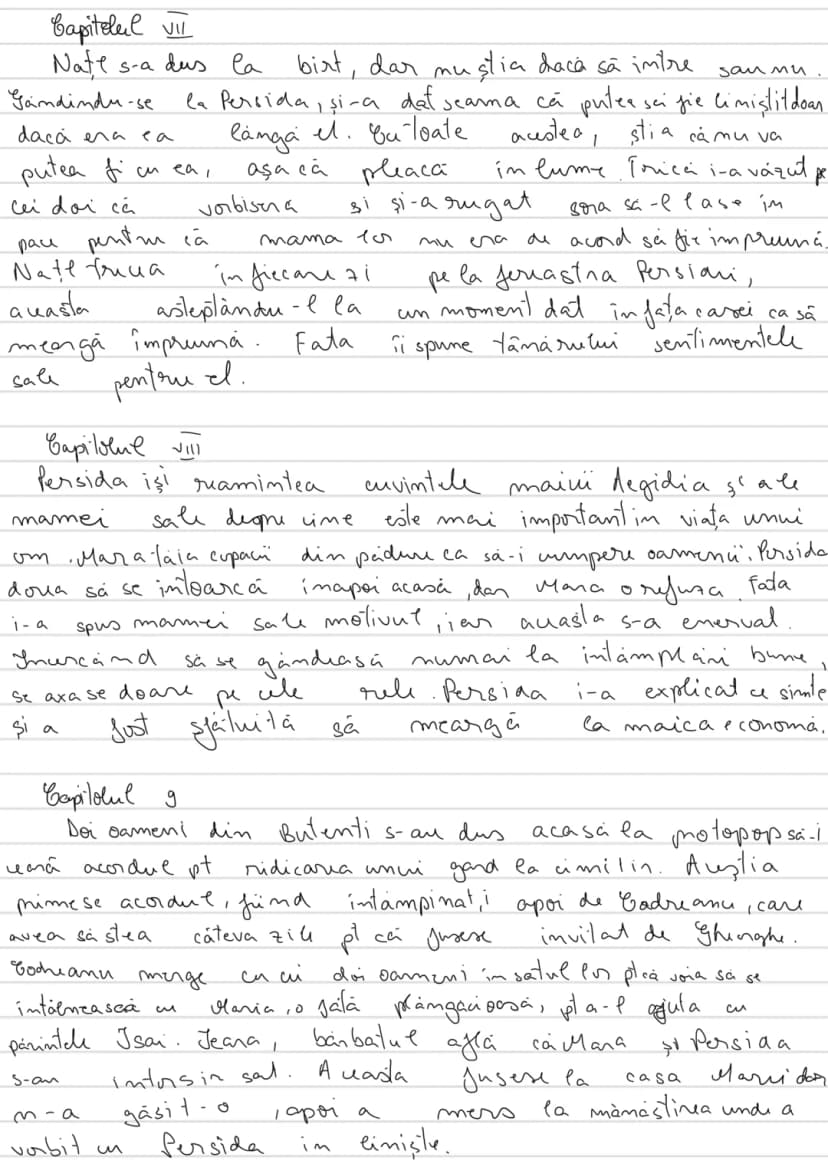 Capitolul VII
Națl s-a dus la birt, dar nu știa dacă să intre sau nu.
Gândindu-se la Persida, și-a dat seama că putea să fie liniștit doar
dacă era ea lângă el. Cu toate acestea, știa că nu va
putea fi cu ea, așa că pleacă în lume. Trică i-a văzut pe
cei doi că vorbiseră și și-a rugat sora să-l lase în
pace pentru că mama lor nu era de acord să fie împreună.
Națl trecea în fiecare zi pe la fereastra Persidei,
aceasta așteptându-l la un moment dat în fața casei ca să
meargă împreună. Fata îi spune tânărului sentimentele
sale pentru el.
Capitolul VIII
Persida își reamintea cuvintele maicii Aegidia și ale
mamei sale despre cine este mai important în viața unui
om. Mara tăia copacii din pădure ca să-i cumpere oamenii. Persida
dorea să se întoarcă înapoi acasă, dar Mara o refuza. Fata
i-a spus mamei sale motivul, iar aceasta s-a enervat.
Încercând să se gândească numai la întâmplări bune,
se axase doare pe cele rele. Persida i-a explicat ce simte
și a fost sfătuită să meargă la maica economă.
Capitolul 9
Doi oameni din Butenti s-au dus acasă la protopop să-i
ceară acordul pt ridicarea unui gard la cimitir. Aceștia
primese acordul, fiind întâmpinați apoi de Codreanu, care
avea să stea câteva zile pt că fusese invitat de Gheorghe.
Codreanu merge cu cei doi oameni în satul lor pt că voia să se
întâlnească cu Maria, o fată plângăcioasă, pt a-l ajuta cu
părintele Isai. Seara, bărbatul află că Mara și Persida
s-au întors în sat. Aceasta fusese la casa Marei dar
n-a găsit-o, apoi a mers la mănăstirea unde a
vorbit cu Persida în liniște.